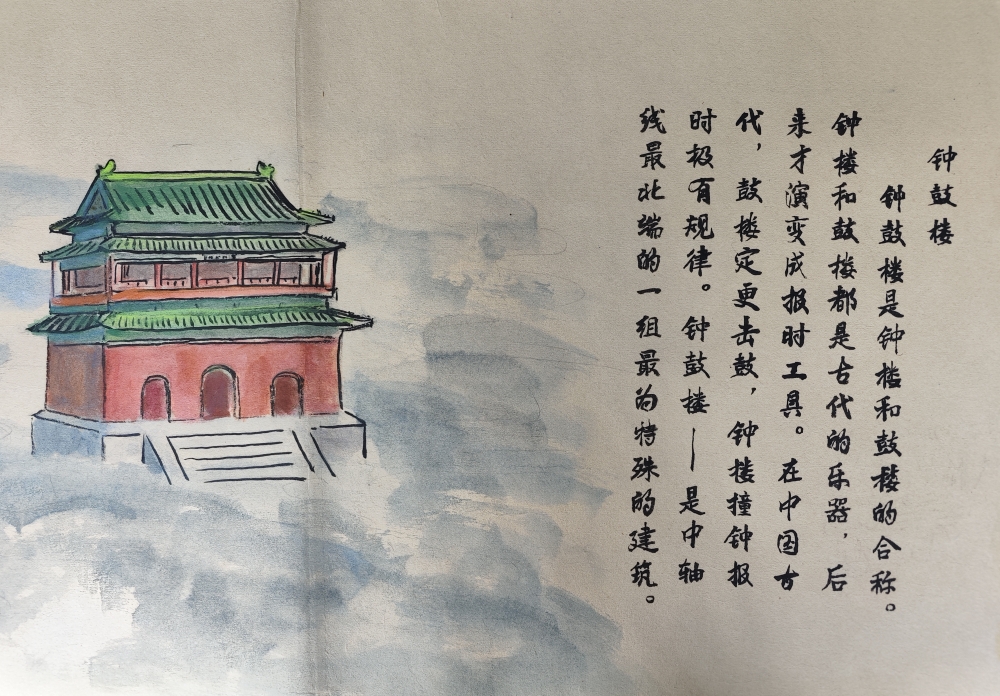 钟鼓楼
钟鼓楼是钟楼和鼓楼的合称。
钟楼和鼓楼都是古代的乐器，后
来才演变成报时工具。在中国古
代，鼓楼定更击鼓，钟楼撞钟报
时极有规律。钟鼓楼——是中轴
线最北端的一组最为特殊的建筑。